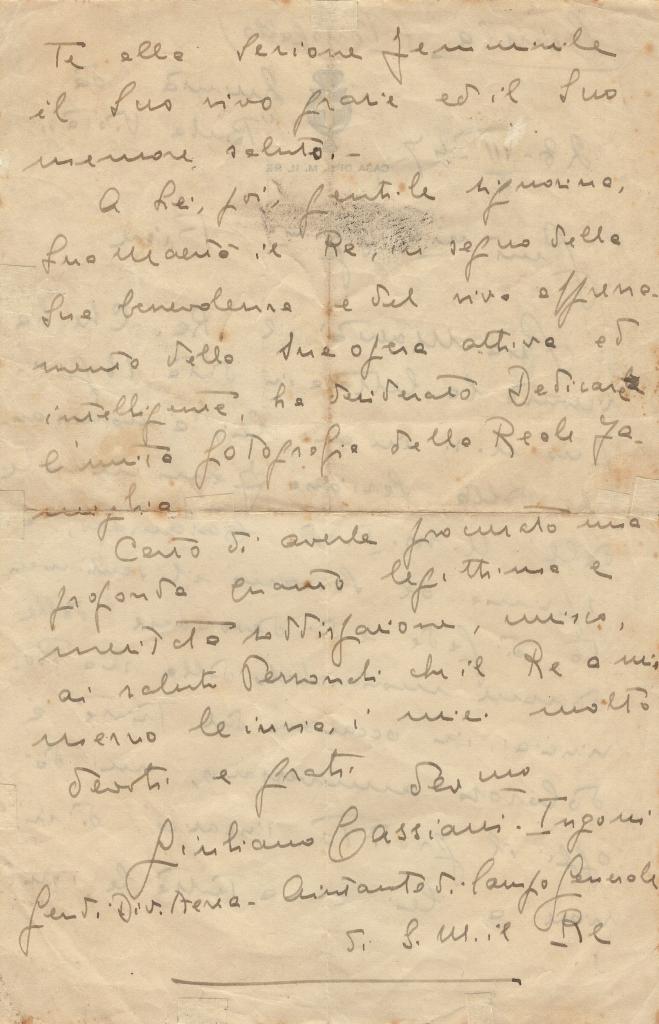 Te alla Sezione femminile
il Suo vivo grazie ed il Suo
memore saluto. -
A Lei, poi, gentile signorina,
Sua Maestà il Re, in segno della
Sua benevolenza e del vivo apprezza-
mento della Sua opera attiva ed
intelligente, ha desiderato Dedicare
l'unita fotografia della Reale Fa-
miglia
Certo di averle procurato una
profonda quanto legittima e
meritata soddisfazione, unisco,
ai saluti Personali che il Re a mio
mezzo le invia, i miei molto
devoti e grati dev mo
Giuliano Cassiani-Ingoni
Gen. di Div. Aerea - Aiutante di Campo Generale
di S. M. il Re
CASA DI S. M. IL RE